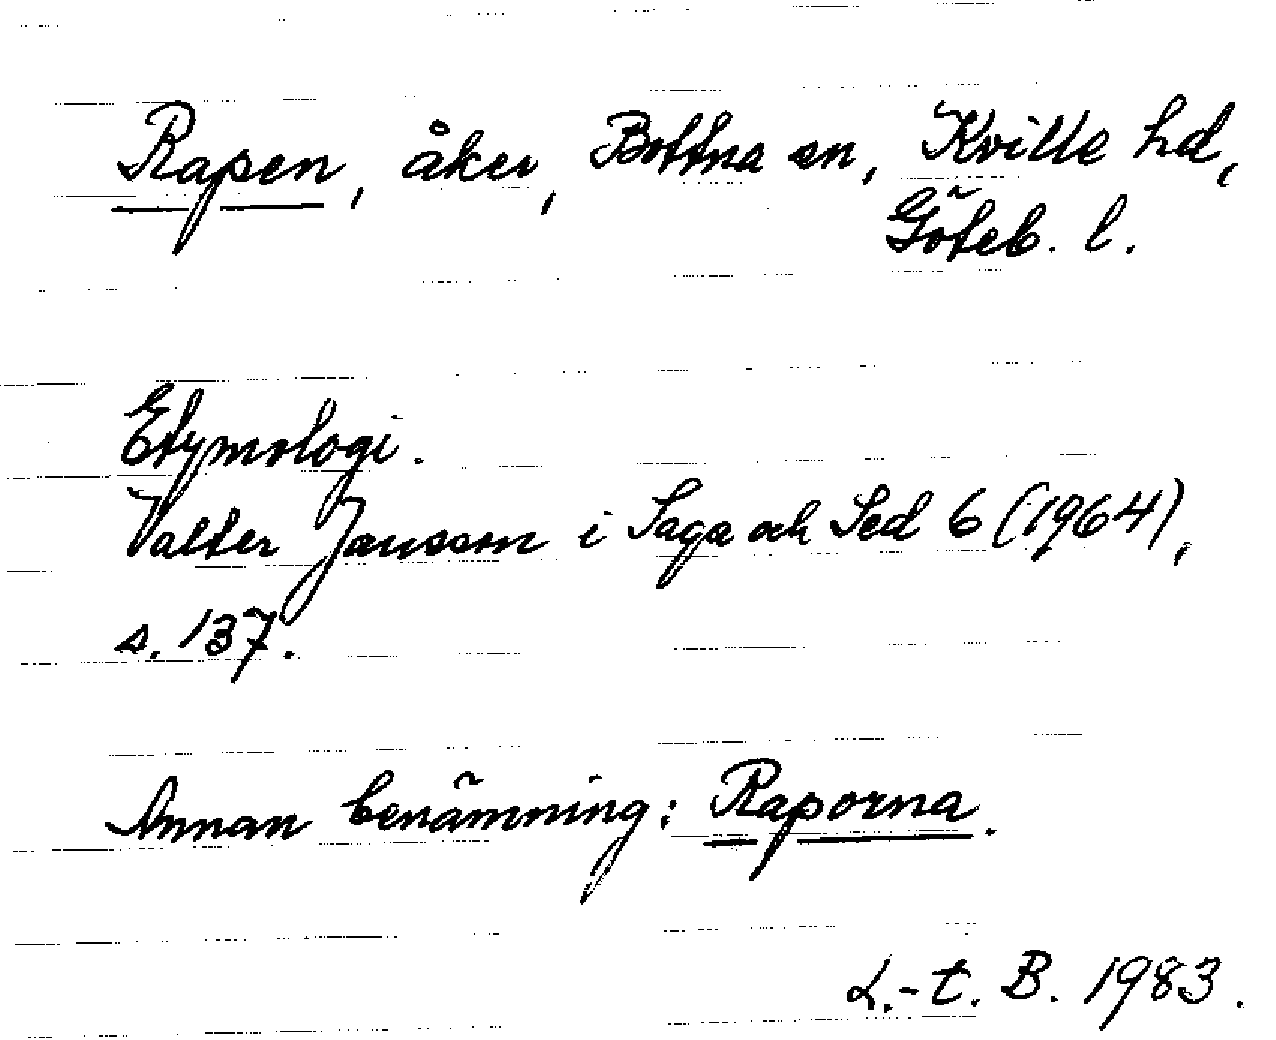 Rapen, åker, Bottna sn, Kville hd,
Göteb. l.
Etymologi.
Valter Jansson i Saga och Sed 6 (1964),
s. 137.
Annan benämning: Raporna.
L.-t. B. 1983.